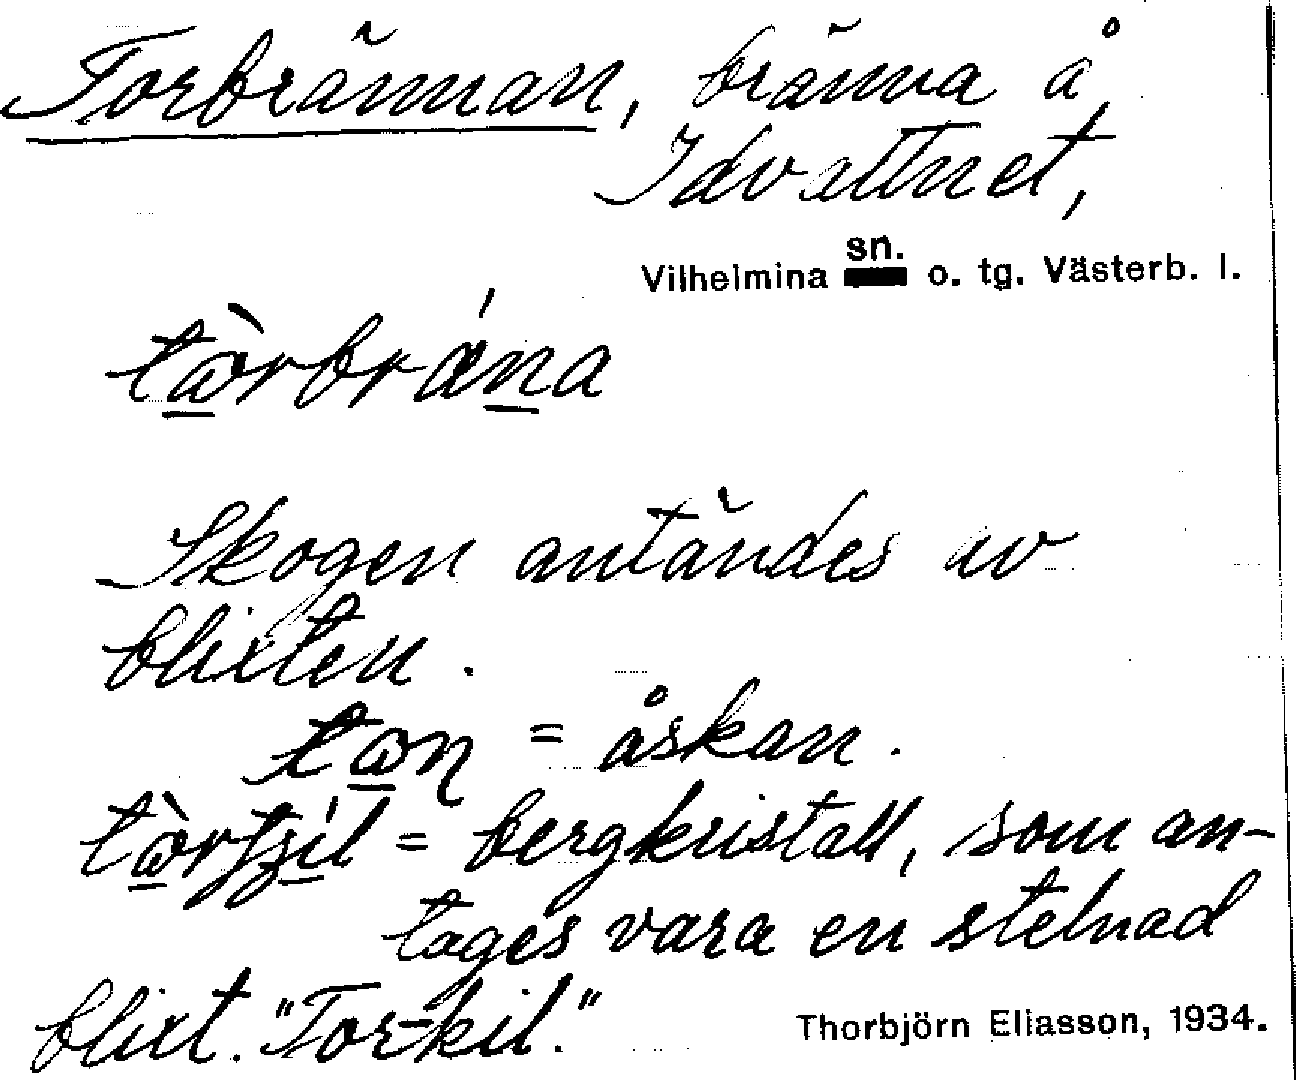 Torbrännan, bränna å
Idvattnet,
Vilhelmina sn. o. tg. Västerb. l.
Skogen antändes av
blixten.
= åskan.
= bergkristall, som an-
tages vara en stelnad
blixt. "Tor-kil."
Thorbjörn Eliasson, 1934.